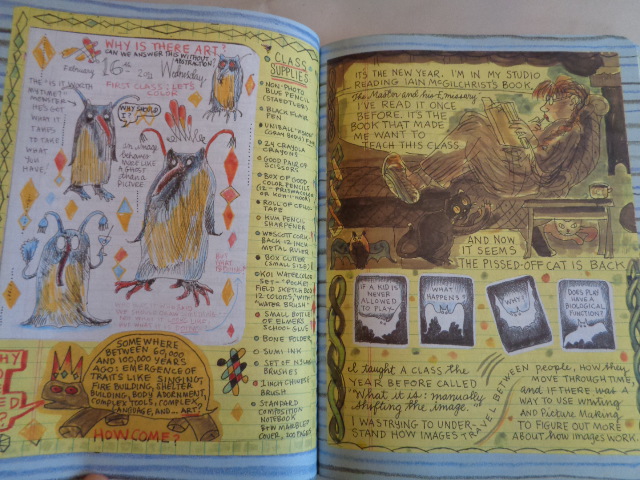 WHY IS THERE ART?
CAN WE ANSWER THIS WITHOUT
ABSTRACTION?
February 16th 2011 Wednesday
FIRST CLASS: LET'S
COLOR
THE "IS IT WORTH
MY TIME?"
MONSTER
HE'S GOT
WHAT IT
TAKES
TO TAKE
WHAT
YOU
HAVE.
WHY SHOULD
I?
AN IMAGE
BEHAVES
MORE LIKE
A GHOST
THAN A
PICTURE.
BUT
WHAT
IS
SOMEWHERE
BETWEEN 60,000
AND 100,000 YEARS
AGO: EMERGENCE OF
TRAITS LIKE SINGING,
FIRE BUILDING, SHELTER
BUILDING, BODY ADORNMENT,
COMPLEX TOOLS, COMPLEX
LANGUAGE, AND... ART?
HOW COME?
CLASS
SUPPLIES
NON-PHOTO
BLUE PENCIL
(STAEDTLER)
BLACK FLAIR
PEN
UNIBALL
24 CRAYOLA
CRAYONS
GOOD PAIR OF
SCISSORS
BOX OF GOOD
COLOR PENCILS
(12 - PRISMACOLOR
OR KOH-I-NOOR)
ROLL OF CELLO-
TAPE
KUM PENCIL
SHARPENER
WESCOTT CORK
BACK 12 INCH
METAL RULER
BOX CUTTER
(SMALL SIZE)
KOI WATERCOLOR
SET - "POCKET
FIELD SKETCH BOX
12 COLORS, WITH
WATER BRUSH"
SMALL BOTTLE
OF ELMERS
SCHOOL GLUE
BONE FOLDER
SUMI INK
SET OF
BRUSHES
1 INCH CHINESE
BRUSH
STANDARD
COMPOSITION
NOTEBOOK
MARBLED
COVER, 200 PAGES
IT'S THE NEW YEAR. I'M IN MY STUDIO
READING IAIN McGILCHRIST'S BOOK,
The Master and his Emissary.
I'VE READ IT ONCE
BEFORE. IT'S THE
BOOK THAT MADE
ME WANT TO
TEACH THIS CLASS
AND NOW
IT SEEMS
THE PISSED-OFF CAT IS BACK.
IF A KID IS
NEVER
ALLOWED TO
PLAY—
WHAT
HAPPENS?
WHY?
DOES PLAY
HAVE A
BIOLOGICAL
FUNCTION?
I taught a CLASS THE
YEAR BEFORE CALLED
"What it is: manually
shifting the image."
I WAS TRYING TO UNDER-
STAND HOW IMAGES
TRAVEL BETWEEN PEOPLE, HOW THEY
MOVE THROUGH TIME,
AND IF THERE WAS A
WAY TO USE WRITING
AND PICTURE MAKING
TO FIGURE OUT MORE
ABOUT HOW IMAGES WORK.